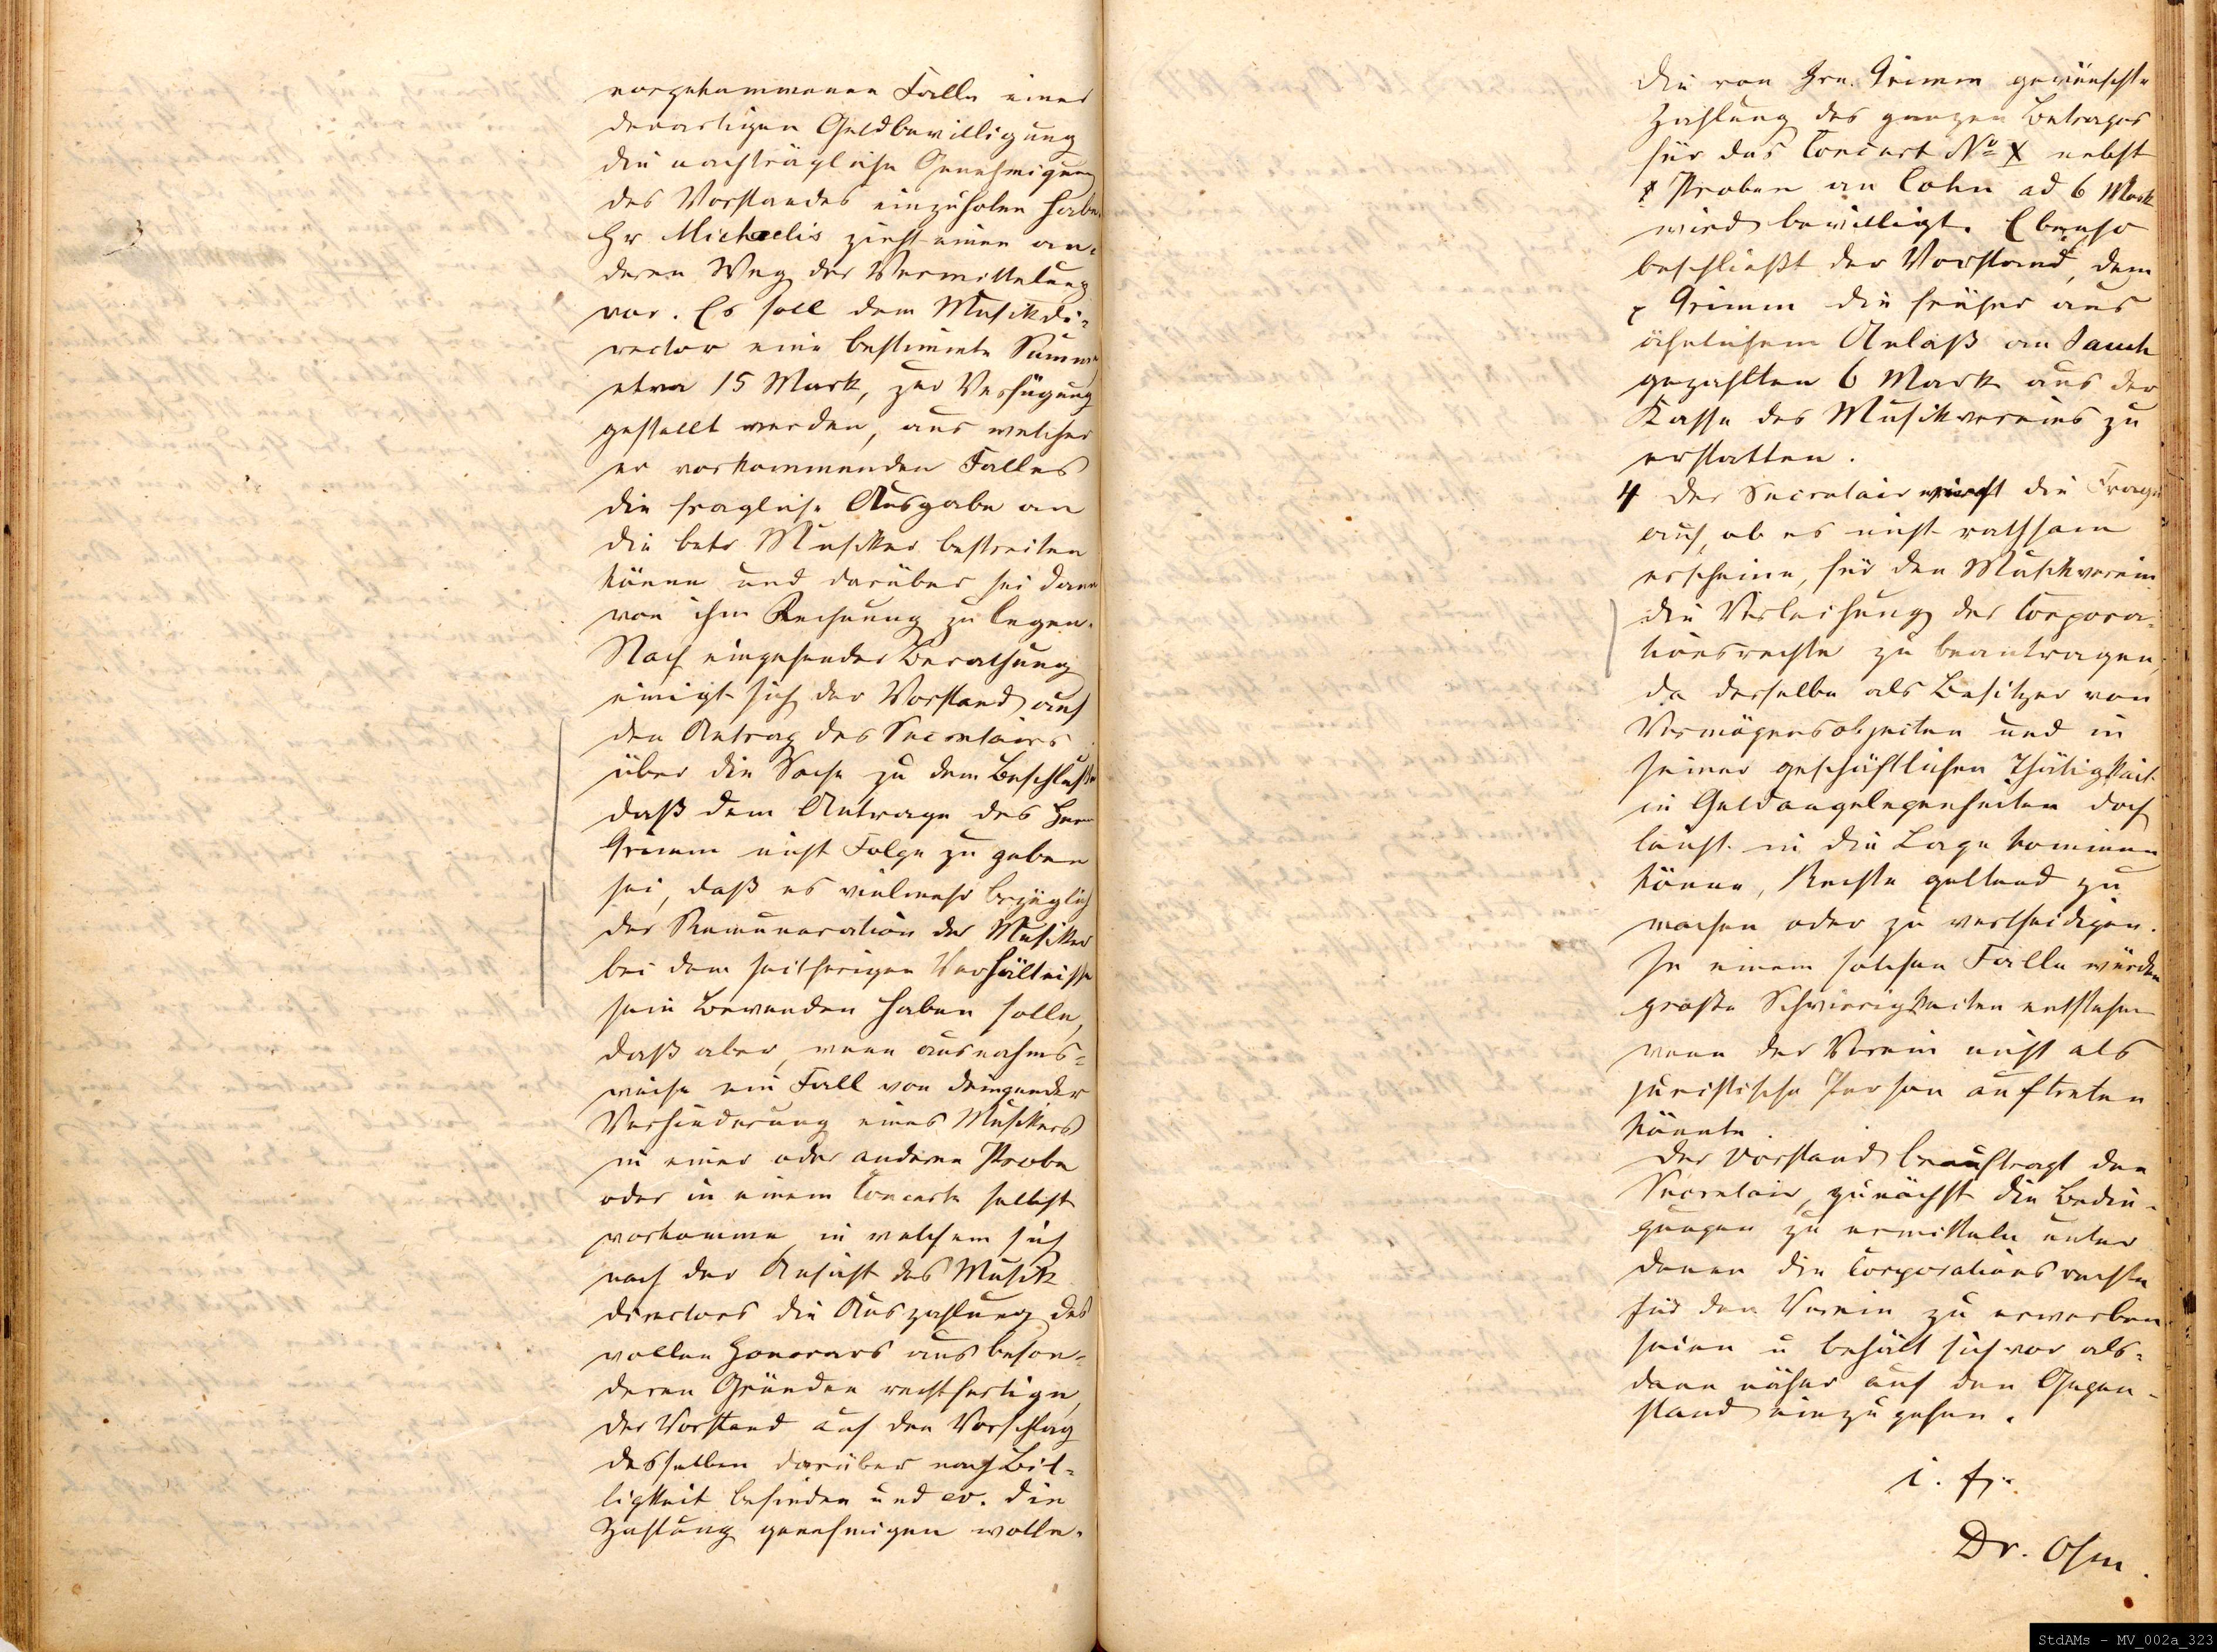 vorgekommenen Falle einer
derartigen Geldbewilligung
die nachträgliche Genehmigung
des Vorstandes einzuholen habe.
Hr Michaelis zieht einen an-
deren Weg der Vermittelung
vor. Es soll dem Musikdi-
rector eine bestimmte Summe
etwa 15 Mark, zur Verfügung
gestellt werden, aus welcher
er vorkommenden Falles
die fragliche Ausgabe an
die betr Musiker bestreiten
könne und darüber sei dann
von ihm Rechnung zu legen.
Nach eingehender Berathung
einigt sich der Vorstand auf
den Antrag des Secretairs
über die Sache zu dem Beschlusse
daß dem Antrage des Herrn
Grimm nicht Folge zu geben
sei, daß es vielmehr bezüglich
der Remuneration der Musiker
bei dem seitherigen Verhältnisse
sein Bewenden haben solle,
daß aber, wenn ausnahms-
weise ein Fall von dringender
Verhinderung eines Musikers
in einer oder anderen Probe
oder in einem Concerte selbst
vorkomme, in welchem sich
nach der Ansicht des Musik
directors die Auszahlung des
vollen Honorars aus beson-
deren Gründen rechtfertige,
der Vorstand auf den Vorschlag
desselben darüber nach Bil-
ligkeit befinden und ev. die
Zahlung genehmigen wolle.
Die von Hrn. Grimm gewünschte
Zahlung des ganzen Betrages
für das Concert No X nebst
Proben an Cohn ad 6 Mark
wird bewilligt. Ebenso
beschließt der Vorstand, dem
Grimm die früher aus
ähnlichem Anlaß an Jauch
gezahlten 6 Mark aus der
Kasse des Musikvereins zu
erstatten.
4 Der Secretair wirft die Frage
auf, ob es nicht rathsam
erscheine, für den Musikverein
die Verleihung der Corpora-
tionsrechte zu beantragen,
da derselbe als Besitzer von
Vermögensobjecten und in
seiner geschäftlichen Thätigkeit
in Geldangelegenheiten doch
leicht in die Lage kommen
könne, Rechte geltend zu
machen oder zu vertheidigen.
In einem solchen Falle würden
große Schwierigkeiten entstehen
wenn der Verein nicht als
juristische Person auftreten
könnte.
Der Vorstand beauftragt den
Secretair, zunächst die Bedin-
gungen zu ermitteln unter
denen die Corporationsrechte
für den Verein zu erwerben
seien u behält sich vor als-
dann näher auf den Gegen-
stand einzugehen.
i. f.
Dr. Ohm.
StdAMs - MV_002a_323